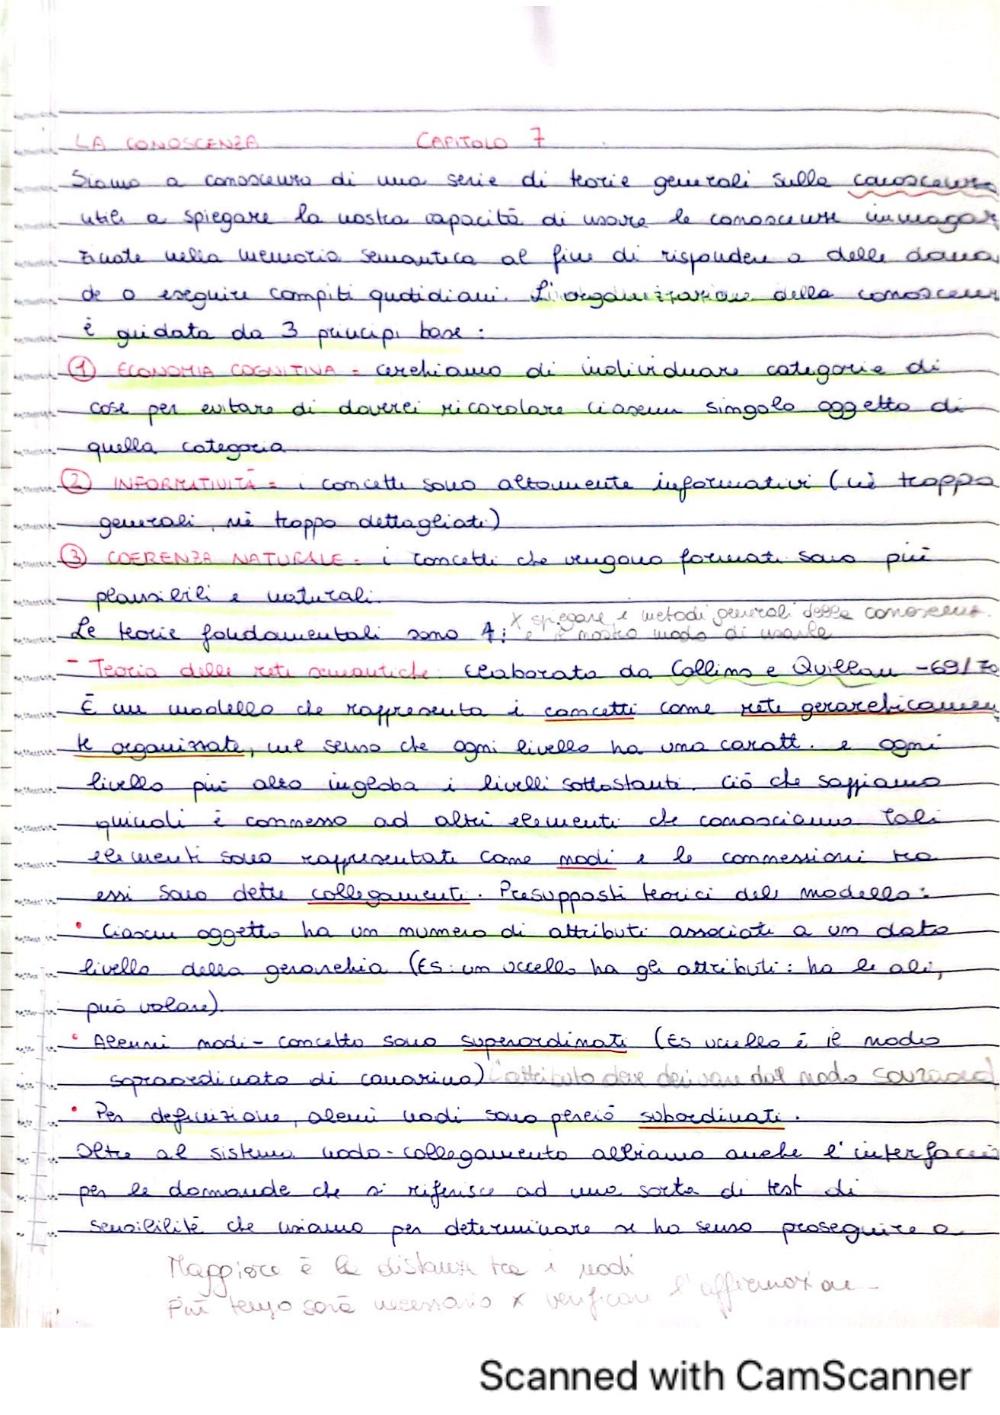 LA CONOSCENZA CAPITOLO 7
Siamo a conoscenza di una serie di teorie generali sulla conoscenza
utili a spiegare la nostra capacità di usare le conoscenze immagaz
zinate nella memoria semantica al fine di rispondere a delle doman
de o eseguire compiti quotidiani. L'organizzazione della conoscenza
è guidata da 3 principi base:
① ECONOMIA COGNITIVA = cerchiamo di individuare categorie di
cose per evitare di doverci ricordare ciascun singolo oggetto di
quella categoria
② INFORMATIVITÀ = i concetti sono altamente informativi (nè troppo
generali, nè troppo dettagliati)
③ COERENZA NATURALE = i concetti che vengono formati sono più
plausibili e naturali.
x spiegare i metodi generali della conoscenz.
Le teorie fondamentali sono 4: e il nostro modo di usarle
- Teoria delle reti semantiche: elaborata da Collins e Quillan -69/70
È un modello che rappresenta i concetti come reti gerarchicamen
te organizzate, nel senso che ogni livello ha una caratt. e ogni
livello più alto ingloba i livelli sottostanti. Ciò che sappiamo
quindi è connesso ad altri elementi che conosciamo. Tali
elementi sono rappresentati come nodi e le connessioni tra
essi sono dette collegamenti. Presupposti teorici del modello:
• Ciascun oggetto ha un numero di attributi associati a un dato
livello della gerarchia (ES: un uccello ha gli attributi: ha le ali,
può volare).
• Alcuni nodi-concetto sono superordinati (ES uccello è il nodo
sopraordinato di canarino) l'attributo deve derivare dal nodo sovraord
• Per definizione, alcuni nodi sono perciò subordinati.
Oltre al sistema nodo-collegamento abbiamo anche l'interfaccia
per le domande che si riferisce ad una sorta di test di
sensibilità che usiamo per determinare se ha senso proseguire o
Maggiore è la distanza tra i nodi
Più tempo sarà necessario x verificare l'affermazione
Scanned with CamScanner